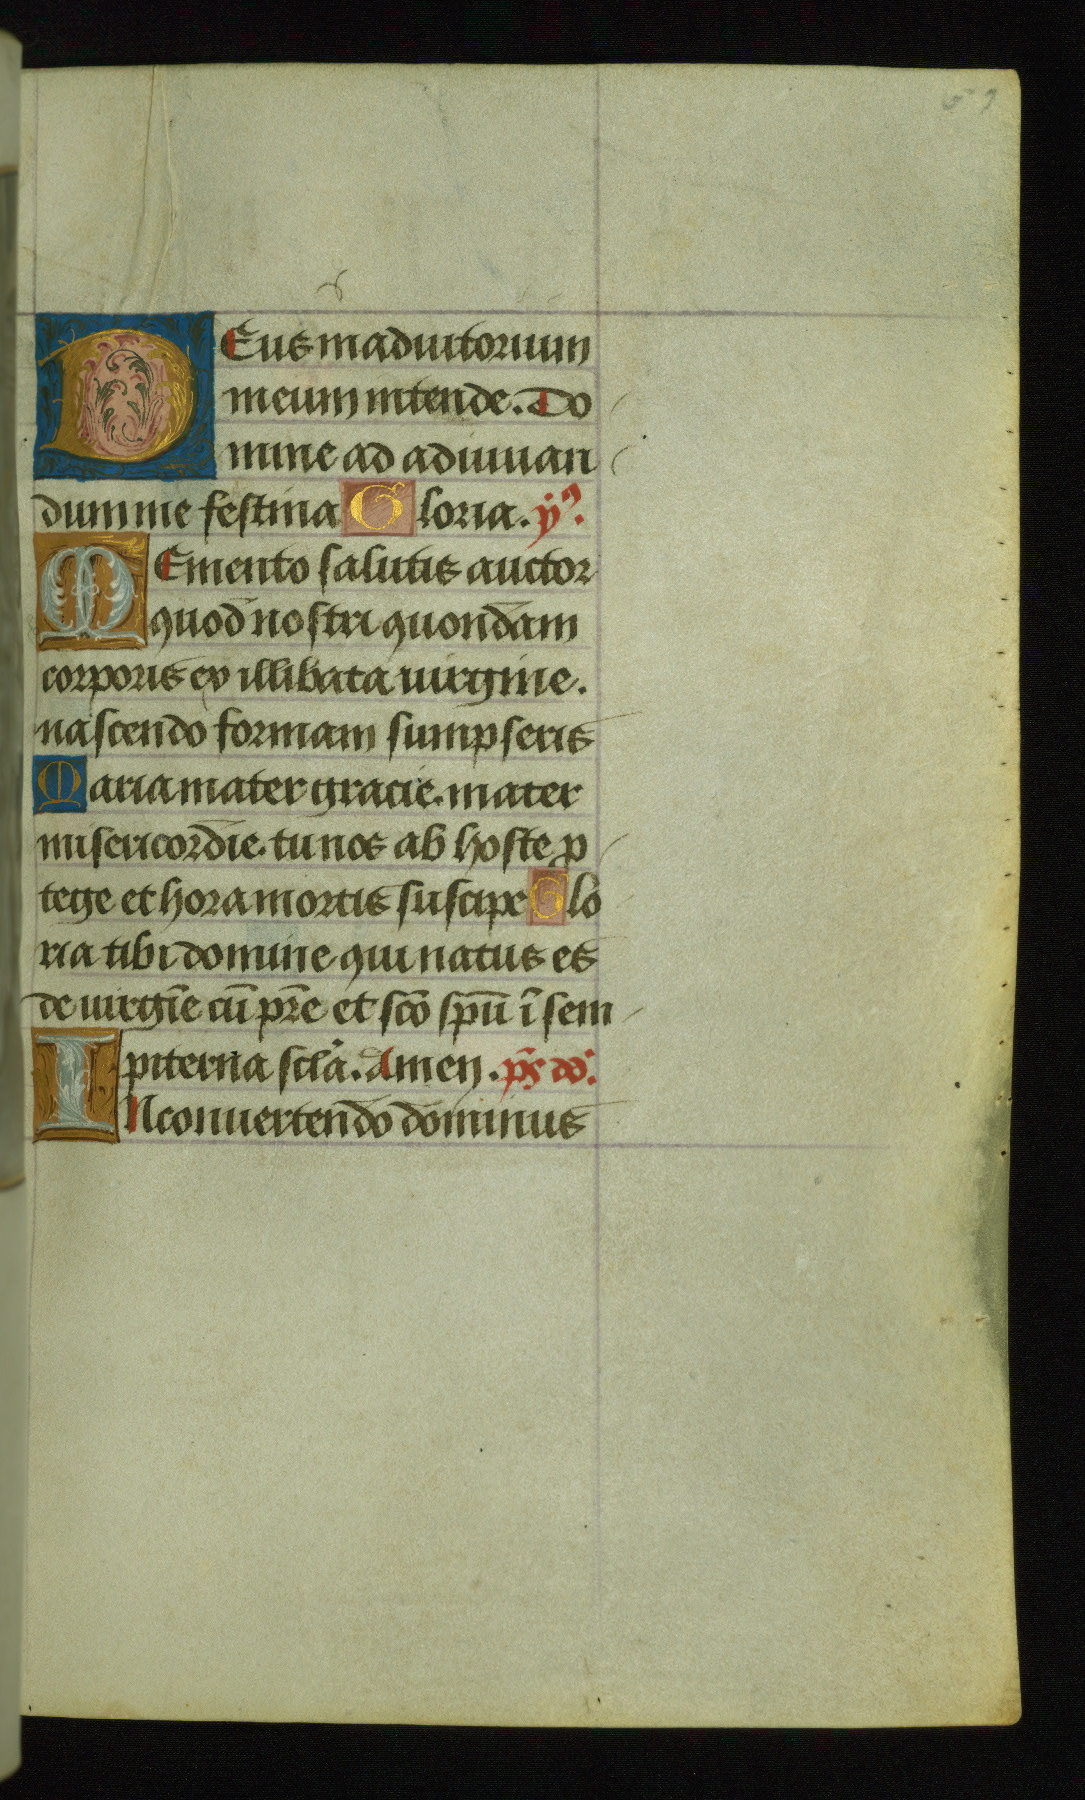 DEus in adiutorium
meum intende. Do
mine ad adiuuan
dum me festina Gloria. ẏꝰ.
MEmento salutis auctor
quod nostri quondam
corporis ex illibata uirgine.
nascendo formam sumpseris
Maria mater gracie. mater
misericordie. tu nos ab hoste p
tege et hora mortis suscipe Glo
ria tibi domine qui natus es
de uirgīe cū pr̄e et sc̄o sp̄u ī sem
piterna scl̄a. Amen. p̄s dd̄.
IN conuertendo dominus